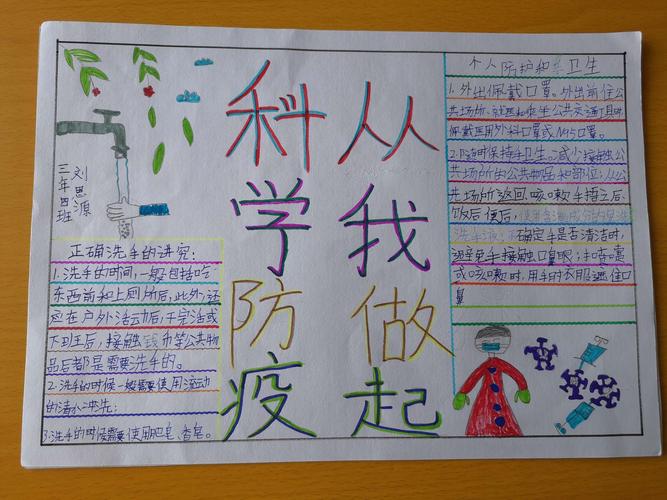 科学防疫
从我做起
三年四班
刘思源
正确洗手的讲究:
1.洗手的时间,一般包括吃
东西前和上厕所后,此外,还
应在户外活动后,干完活或
下卫王后,接触钱币等公共物
品后都是需要洗手的。
2.洗手的时候一般需要使用流动
的清水冲洗;
3.洗手的时候需要使用肥皂、香皂。
个人防护和卫生
1.外出佩戴口罩。外出前往公
共场所、
公共交通工具时
佩戴医用外科口罩或N95口罩。
2.随时保持手卫生。减少接触公
共场所的公共物品和部位;从公
共场所返回、咳嗽手捂之后、
饭后便后,
洗手液;不确定手是否清洁时,
避免用手接触口鼻眼;打喷嚏
或咳嗽时,用手肘衣服遮住口
鼻